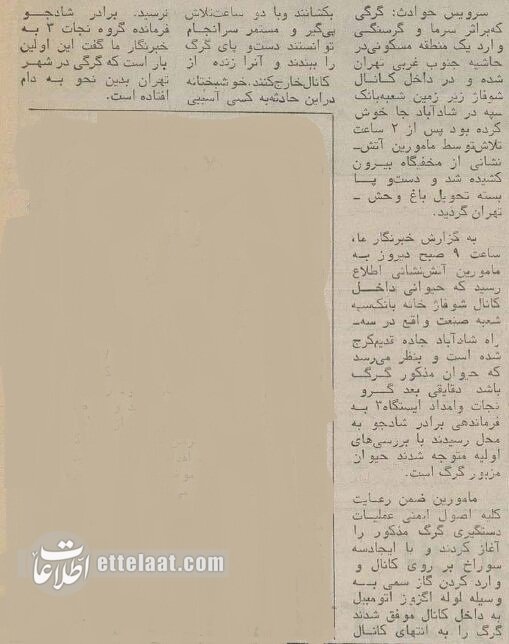 سرویس حوادث: گرگی
که‌براثر سرما و گرسنگی
وارد یک منطقه مسکونی‌در
حاشیه جنوب غربی تهران
شده و در داخل کانال
شوفاژ زیر زمین شعبه‌بانک
سپه در شادآباد جا خوش
کرده بود پس از ۲ ساعت
تلاش‌توسط مامورین آتش‌ـ
نشانی از مخفیگاه بیرون
کشیده شد و دست‌و پا
بسته تحویل باغ وحش ـ
تهران گردید.
به گزارش خبرنگار ما،
ساعت ۹ صبح دیروز به
مامورین آتش‌نشانی اطلاع
رسید که حیوانی داخل
کانال شوفاژ خانه بانک‌سپه
شعبه صنعت واقع در سه‌ـ
راه شادآباد جاده قدیم‌کرج
شده است و بنظر می‌رسد
که حیوان مذکور گرگ
باشد دقایقی بعد گروه
نجات وامداد ایستگاه۳ به
فرماندهی برادر شادجو به
محل رسیدند با بررسی‌های
اولیه متوجه شدند حیوان
مزبور گرگ است.
مامورین ضمن رعایت
کلیه اصول ایمنی عملیات
دستگیری گرگ مذکور را
آغاز کردند و با ایجادسه
سوراخ بر روی کانال و
وارد کردن گاز سمی به
وسیله لوله اگزوز اتومبیل
به داخل کانال موفق شدند
گرگ را به انتهای کانال
بکشانند وبا دو ساعت‌تلاش
پی‌گیر و مستمر سرانجام
توانستند دست‌و پای گرگ
را ببندند و آنرا زنده از
کانال‌خارج‌کنند.خوشبختانه
دراین حادثه‌به کسی آسیبی
نرسید. برادر شادجو
فرمانده گروه نجات ۳ به
خبرنگار ما گفت این اولین
بار است که گرگی در شهر
تهران بدین نحو به دام
افتاده است.
اطلاعات
ettelaat.com